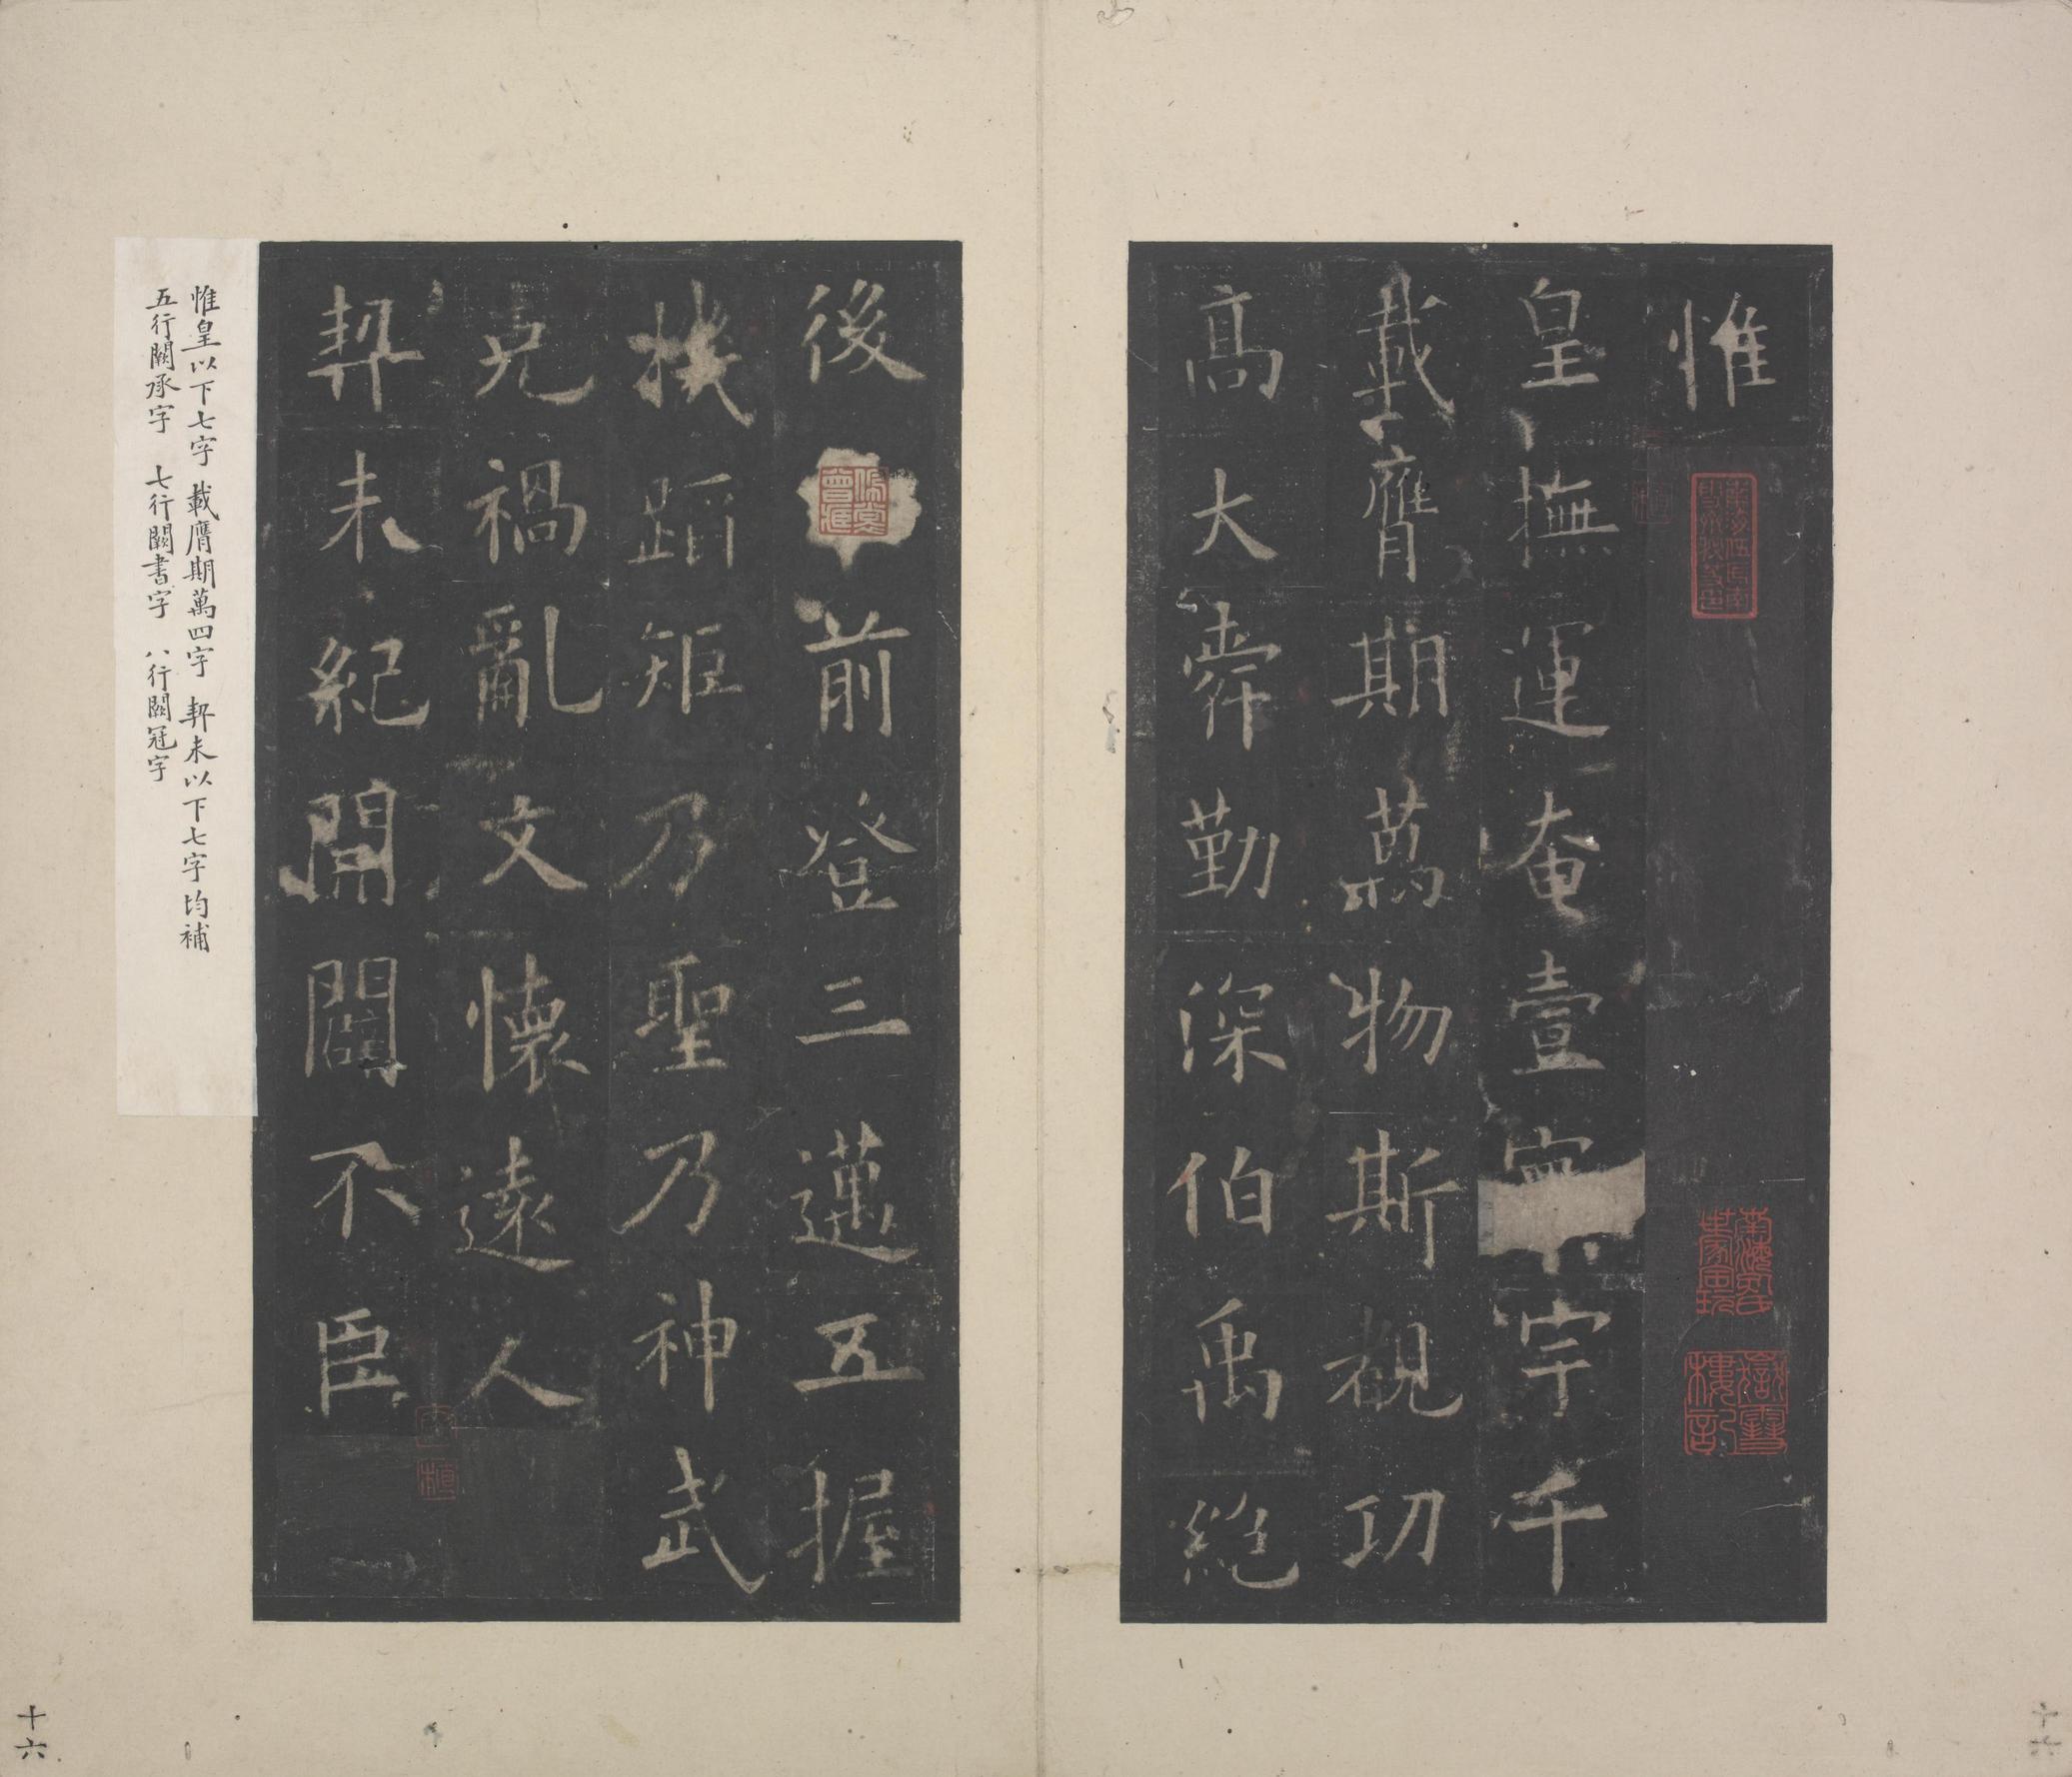 惟
皇撫運奄壹寰宇千
載膺期萬物斯覩功
高大舜勤深伯禹絕
後前登三邁五握
機蹈矩乃聖乃神武
克禍亂文懷遠人
契未紀開闢不臣
惟皇以下七字 載膺期萬四字 契未以下七字均補
五行闕承字 七行闕書字 八行闕冠字
嶽雪樓記
十六
十六